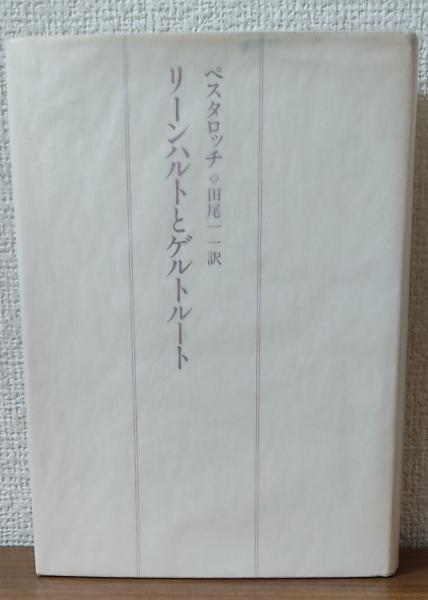 ペスタロッチ◦田尾一一訳
リーンハルトとゲルトルート